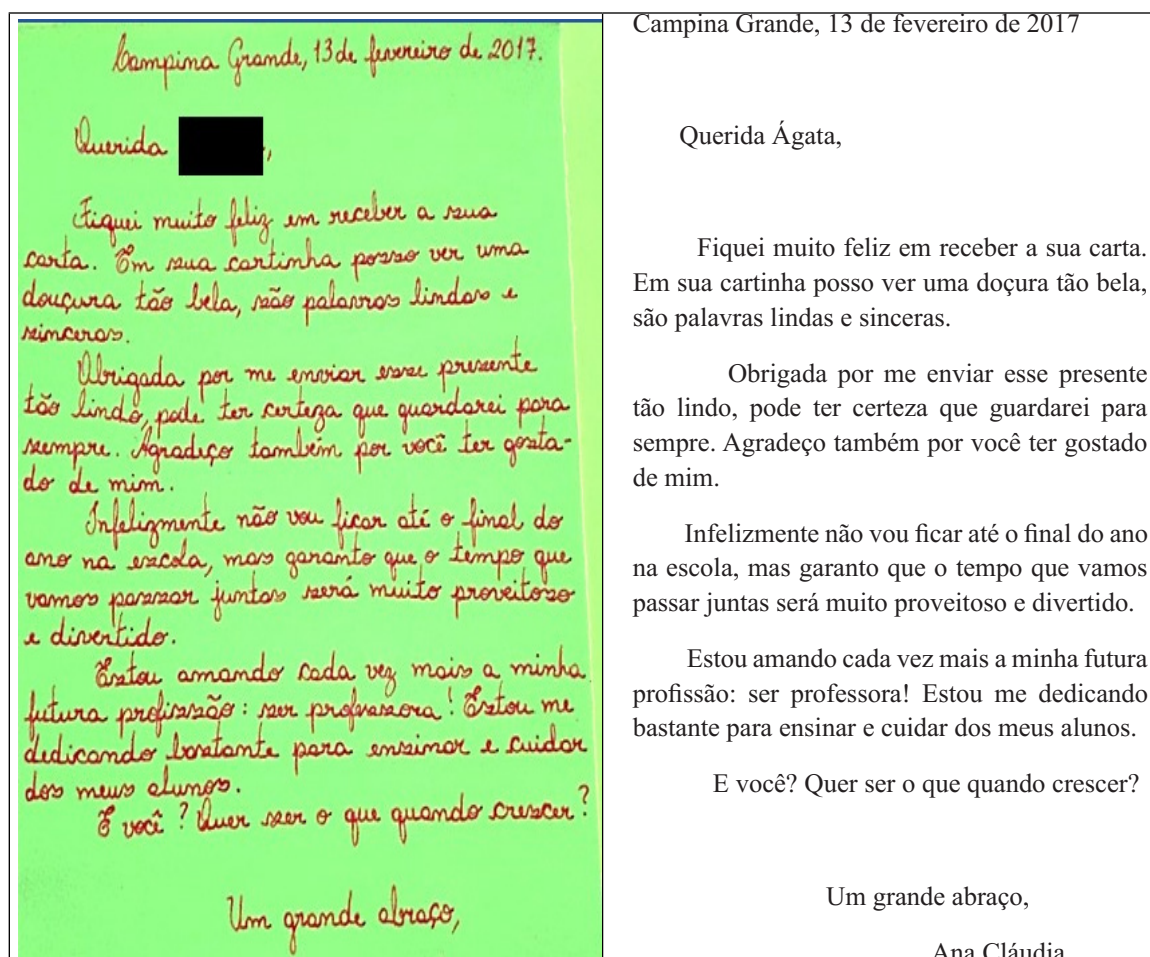 Campina Grande, 13 de fevereiro de 2017.
Querida ,
Fiquei muito feliz em receber a sua
carta. Em sua cartinha posso ver uma
douçura tão bela, são palavras lindas e
sinceras.
Obrigada por me enviar esse presente
tão lindo, pode ter certeza que guardarei para
sempre. Agradeço também por você ter gosta-
do de mim.
Infelizmente não vou ficar até o final do
ano na escola, mas garanto que o tempo que
vamos passar juntas será muito proveitoso
e divertido.
Estou amando cada vez mais a minha
futura profissão: ser professora! Estou me
dedicando bastante para ensinar e cuidar
dos meus alunos.
E você? Quer ser o que quando crescer?
Um grande abraço,
Campina Grande, 13 de fevereiro de 2017
Querida Ágata,
Fiquei muito feliz em receber a sua carta.
Em sua cartinha posso ver uma doçura tão bela,
são palavras lindas e sinceras.
Obrigada por me enviar esse presente
tão lindo, pode ter certeza que guardarei para
sempre. Agradeço também por você ter gostado
de mim.
Infelizmente não vou ficar até o final do ano
na escola, mas garanto que o tempo que vamos
passar juntas será muito proveitoso e divertido.
Estou amando cada vez mais a minha futura
profissão: ser professora! Estou me dedicando
bastante para ensinar e cuidar dos meus alunos.
E você? Quer ser o que quando crescer?
Um grande abraço,
Ana Cláudia